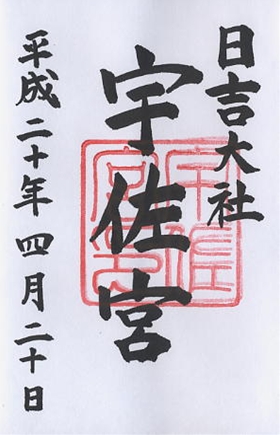 日吉大社
宇佐宮
平成二十年四月二十日